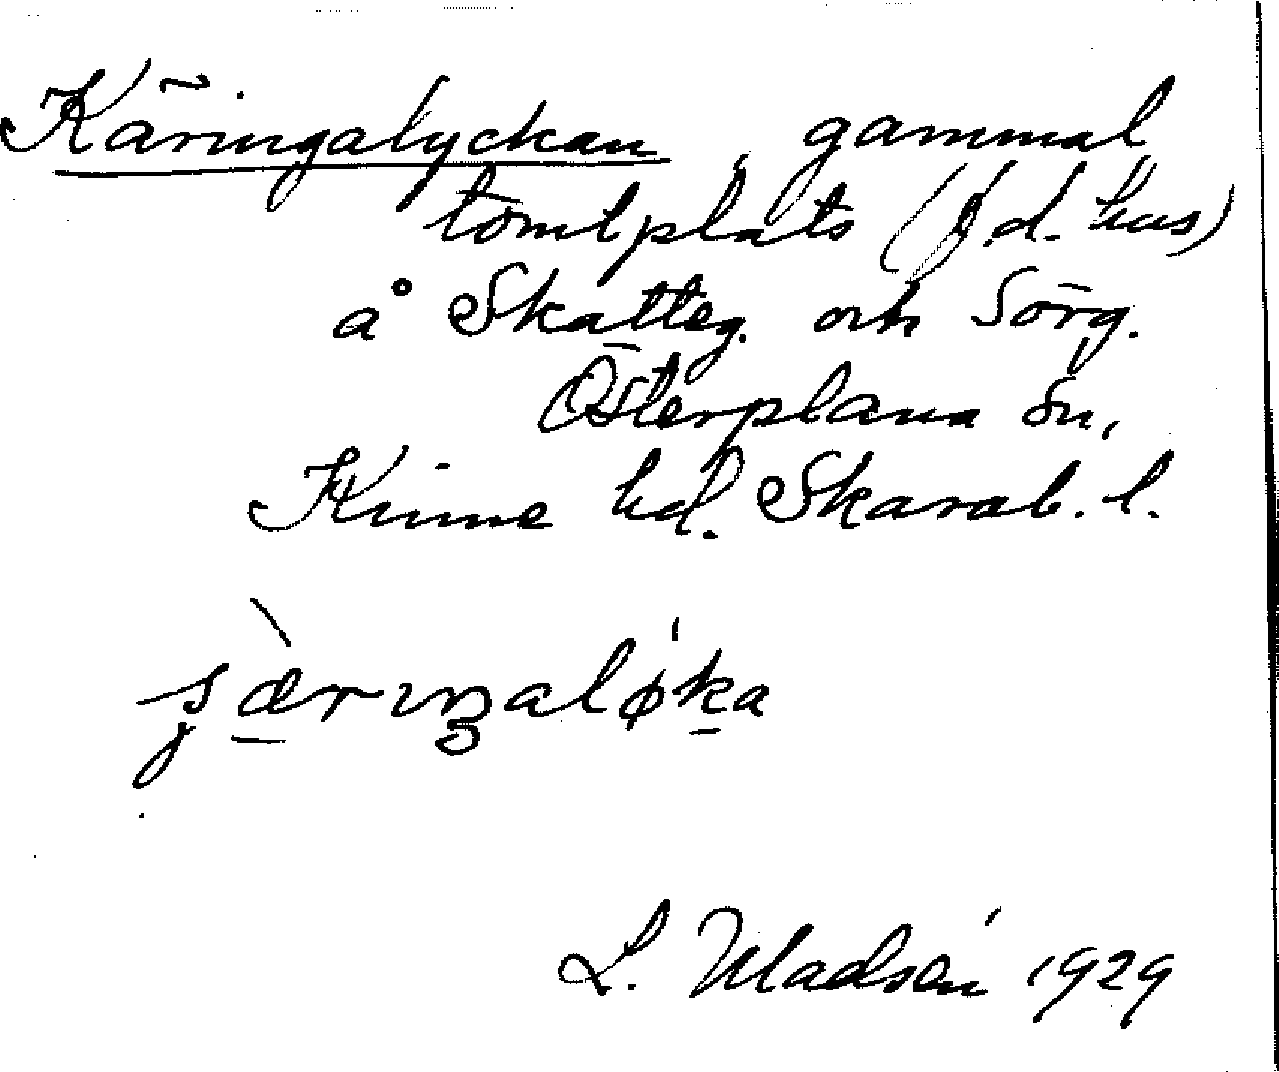 Käringalyckan, gammal
tomtplats (f.d. hus)
å Skatteg. och Sörg.
Österplana sn,
Kinne hd. Skarab. l.
L. Madsén 1929